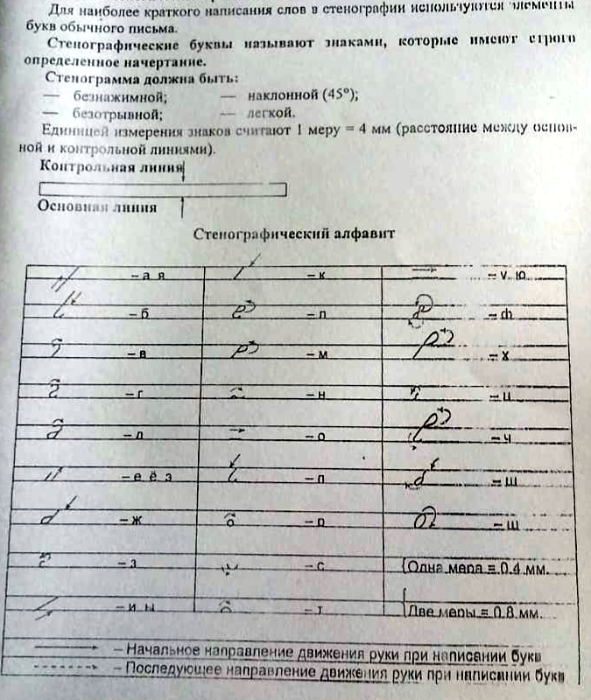 Для наиболее краткого написания слов в стенографии используются элементы
букв обычного письма.
Стенографические буквы называют знаками, которые имеют строго
определенное начертание.
Стенограмма должна быть:
— безнажимной; — наклонной (45°);
— безотрывной; — легкой.
Единицей измерения знаков считают 1 меру = 4 мм (расстояние между основ-
ной и контрольной линиями).
Контрольная линия
Основная линия
Стенографический алфавит
– а я – к – у, ю
– б – л – ф
– в – м – х
– г – н – ц
– д – о – ч
– е ё э – п – ш
– ж – р – щ
– з – с Одна мера = 0.4 мм.
– и ы – т Две меры = 0.8 мм.
– Начальное направление движения руки при написании букв
– Последующее направление движения руки при написании букв